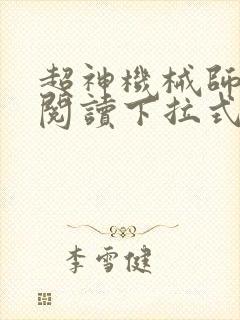 超神機械師
閱讀下拉式
李雪健